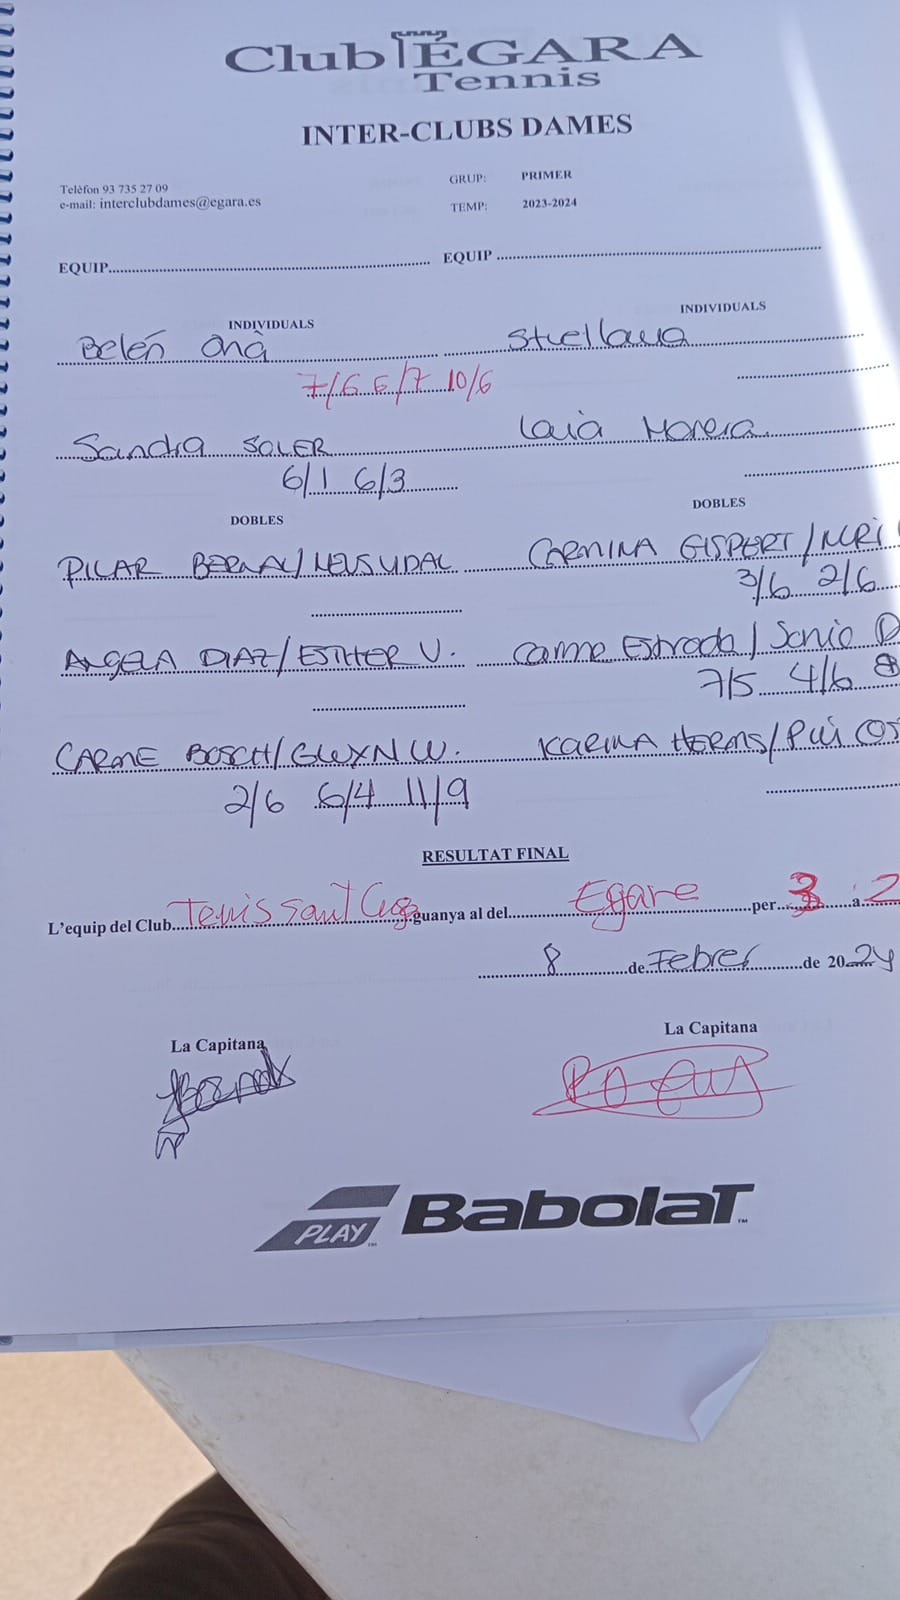 Club EGARA
Tennis
INTER-CLUBS DAMES
Telèfon 93 735 27 09
e-mail: interclubdames@egara.es
GRUP: PRIMER
TEMP: 2023-2024
EQUIP EQUIP
INDIVIDUALS INDIVIDUALS
Belén Onà
7/6 6/7 10/6
Sandra SOLER Laia Morera
6/1 6/3
DOBLES DOBLES
PILAR BERNAL/NEUS VIDAL CARMINA GISPERT/
3/6 2/6
ANGELA DIAZ/ESTHER V. Carme Estrada/Sonia
7/5 4/6
CARME BOSCH/GWXN W. KARINA HERMS/
2/6 6/4 11/9
RESULTAT FINAL
L'equip del Club Tenis Sant Cugat guanya al del Egara per 3 a 2
8 de Febrer de 2024
La Capitana La Capitana
PLAY BabolaT